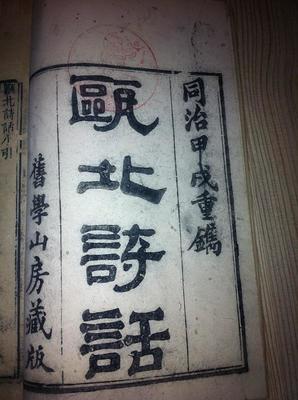 同治甲戌重鐫
甌北詩話
舊學山房藏版
甌北詩話小引